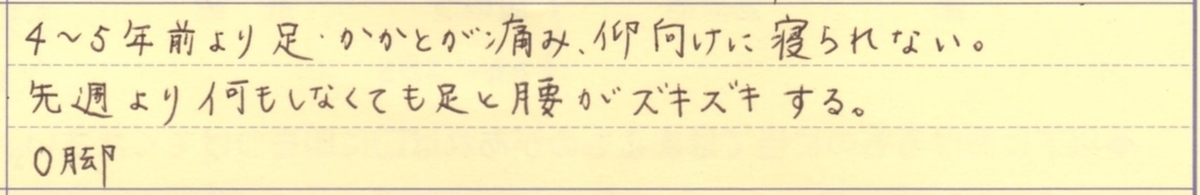 4〜5年前より足・かかとが痛み、仰向けに寝られない。
先週より何もしなくても足と腰がズキズキする。
O脚